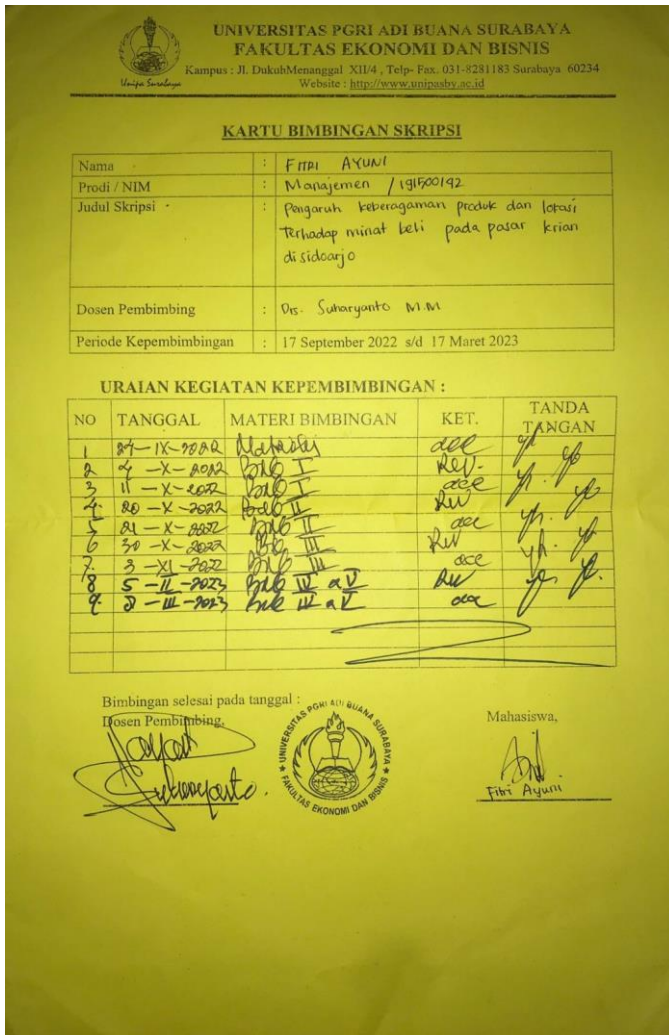 UNIVERSITAS PGRI ADI BUANA SURABAYA
FAKULTAS EKONOMI DAN BISNIS
Kampus : Jl. DukuhMenanggal XII/4 , Telp- Fax. 031-8281183 Surabaya 60234
Website : http://www.unipasby.ac.id
Unipa Surabaya
KARTU BIMBINGAN SKRIPSI
Nama : FITRI AYUNI
Prodi / NIM : Manajemen / 191500192
Judul Skripsi : Pengaruh keberagaman produk dan lokasi
Terhadap minat beli pada pasar krian
di sidoarjo
Dosen Pembimbing : Drs. Suharyanto M.M
Periode Kepembimbingan : 17 September 2022 s/d 17 Maret 2023
URAIAN KEGIATAN KEPEMBIMBINGAN :
NO TANGGAL MATERI BIMBINGAN KET. TANDA TANGAN
1 27-IX-2022 acc
2 4 -X-2022 Bab I Rev.
3 11 -X-2022 Bab I acc
4. 20 -X-2022 Bab II Rev
5 21 -X-2022 Bab II acc
6 30 -X-2022 Bab III Rev
7. 3 -XI-2022 Bab III acc
8 5 -II-2023 Bab IV & V Rev
9. 8 -III-2023 Bab IV & V acc
Bimbingan selesai pada tanggal :
Dosen Pembimbing, Mahasiswa,
UNIVERSITAS PGRI ADI BUANA SURABAYA
FAKULTAS EKONOMI DAN BISNIS
Suharyanto. Fitri Ayuni